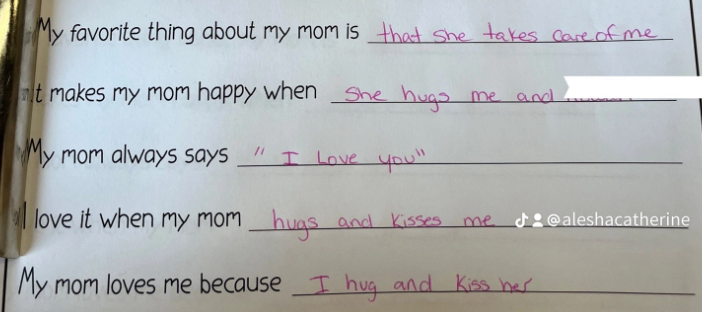 My favorite thing about my mom is that she takes care of me
It makes my mom happy when she hugs me and
My mom always says " I Love you"
I love it when my mom hugs and kisses me @aleshacatherine
My mom loves me because I hug and kiss her